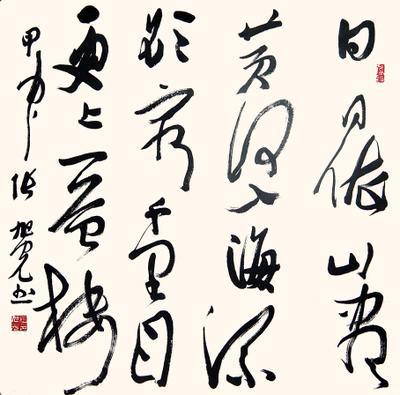 白日依山尽
黄河入海流
欲穷千里目
更上一层楼
甲午张旭光书